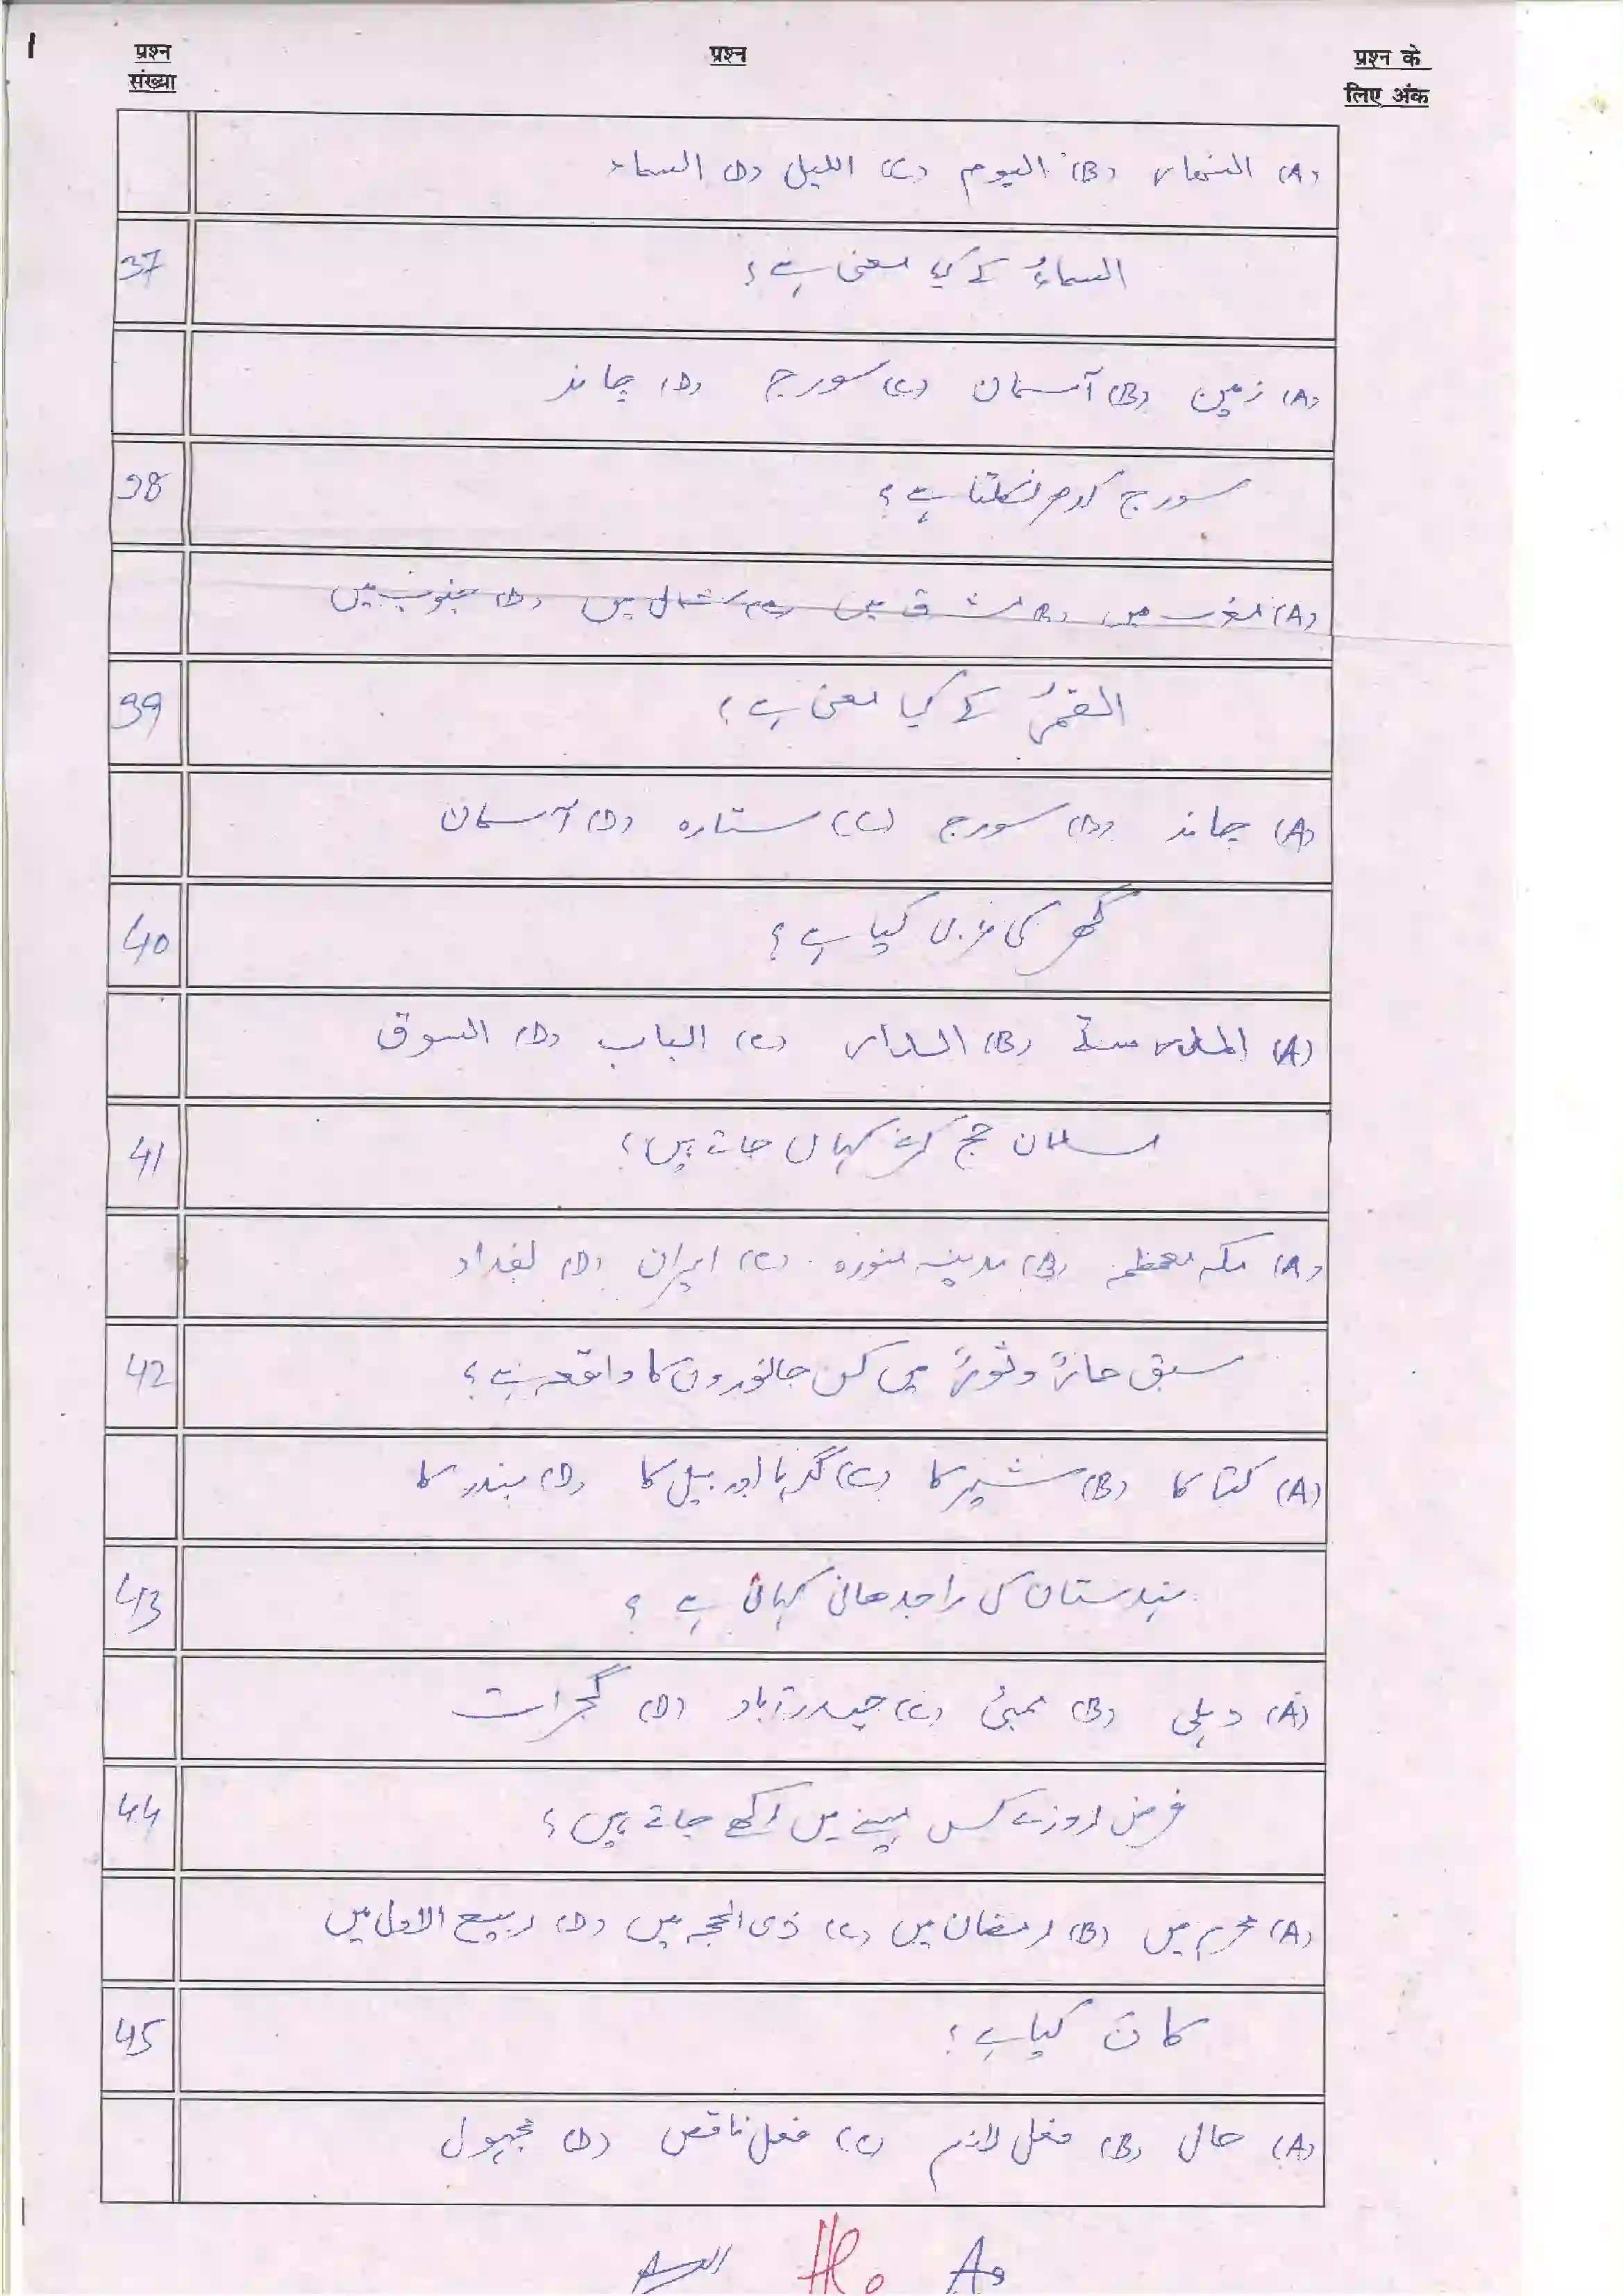 प्रश्न संख्या
प्रश्न
प्रश्न के लिए अंक
(A) النھار (B) الیوم (C) اللیل (D) السماء
37
السماءُ کے کیا معنی ہے؟
(A) زمین (B) آسمان (C) سورج (D) چاند
38
سورج کدھر نکلتا ہے؟
(A) مغرب میں (B) مشرق میں (C) شمال میں (D) جنوب میں
39
القمرُ کے کیا معنی ہے؟
(A) چاند (B) سورج (C) ستارہ (D) آسمان
40
گھر کی عربی کیا ہے؟
(A) المدرسۃ (B) الدار (C) الباب (D) السوق
41
مسلمان حج کرنے کہاں جاتے ہیں؟
(A) مکہ معظمہ (B) مدینہ منورہ (C) ایران (D) بغداد
42
سبق حمارٌ وثورٌ میں کس جانوروں کا واقعہ ہے؟
(A) کتا کا (B) شیر کا (C) گدہا اور بیل کا (D) بندر کا
43
ہندستان کی راجدھانی کہاں ہے؟
(A) دہلی (B) ممبئی (C) حیدرآباد (D) گجرات
44
فرض روزے کس مہینے میں رکھے جاتے ہیں؟
(A) محرم میں (B) رمضان میں (C) ذی الحجہ میں (D) ربیع الاول میں
45
کان کیا ہے؟
(A) حال (B) فعل لازم (C) فعل ناقص (D) مجہول